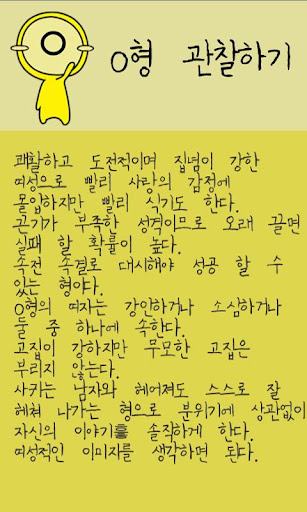 O
O형 관찰하기
쾌활하고 도전적이며 집념이 강한
여성으로 빨리 사랑의 감정에
몰입하지만 빨리 식기도 한다.
끈기가 부족한 성격이므로 오래 끌면
실패 할 확률이 높다.
속전 속결로 대시해야 성공 할 수
있는 형이다.
O형의 여자는 강인하거나 소심하거나
둘 중 하나에 속한다.
고집이 강하지만 무모한 고집은
부리지 않는다.
사귀는 남자와 헤어져도 스스로 잘
헤쳐 나가는 형으로 분위기에 상관없이
자신의 이야기를 솔직하게 한다.
여성적인 이미자를 생각하면 된다.